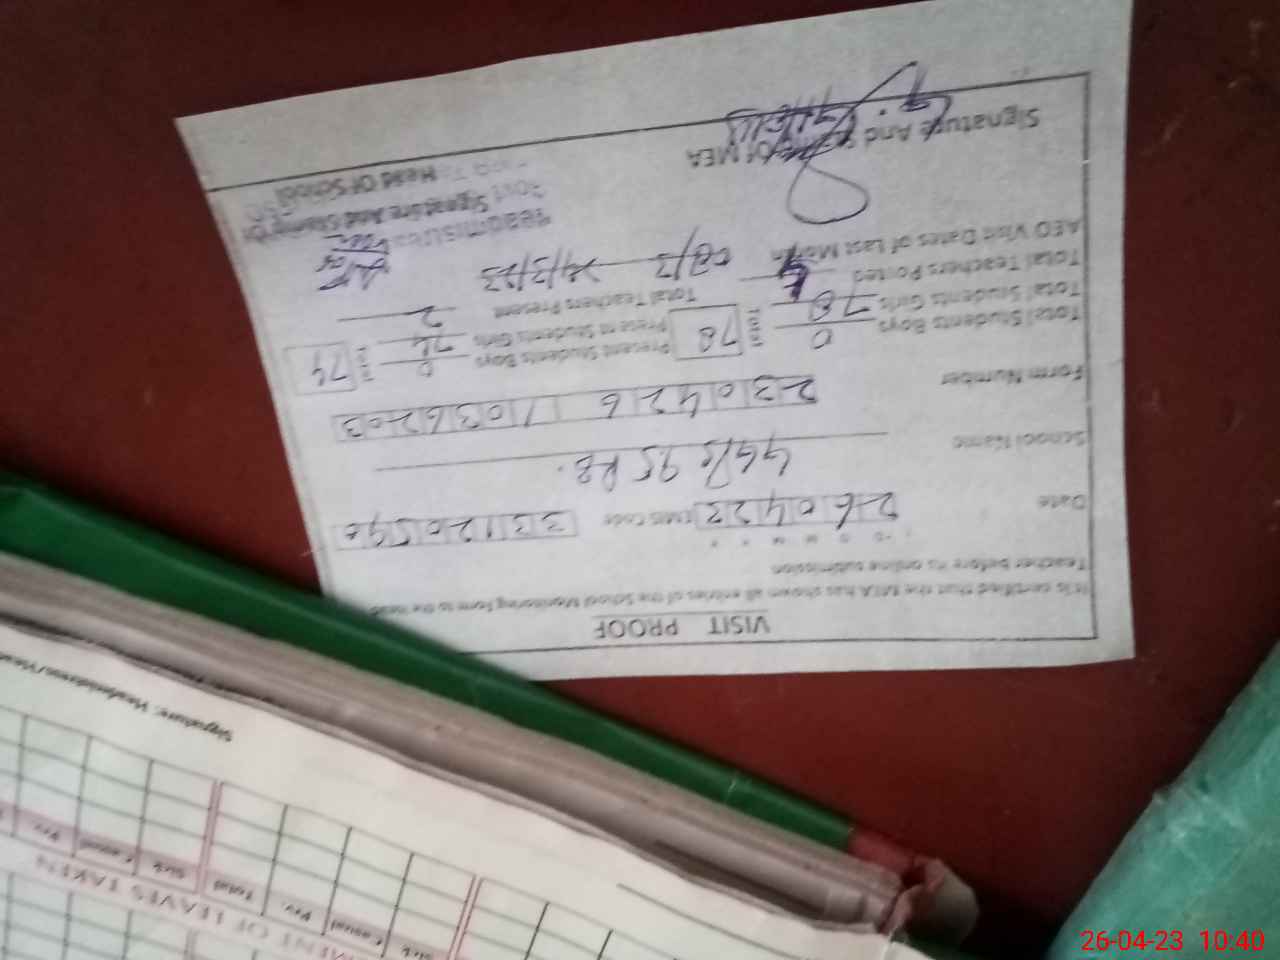 VISIT PROOF
It is certified that the MEA has shown all entries of the School Monitoring Form to the head
Teacher before its online submission
D D M M Y Y
Date 260423 EMIS Code 33120590
School Name 95 RB.
Form Number 230426 1036203
Total Students Boys 0 Total 78 Present Students Boys 0 Total 74
Total Students Girls 78 Present Students Girls 74
Total Teachers Posted 4 Total Teachers Present 2
AEO Visit Dates of Last Month 08/3 24/3/23
Signature And Stamp Of MEA
Signature And Stamp Of
Head Of School
Signature: Headmistress/
Sick Casual Prv. Total Sick Casual Prv.
OF LEAVES TAKEN
26-04-23 10:40